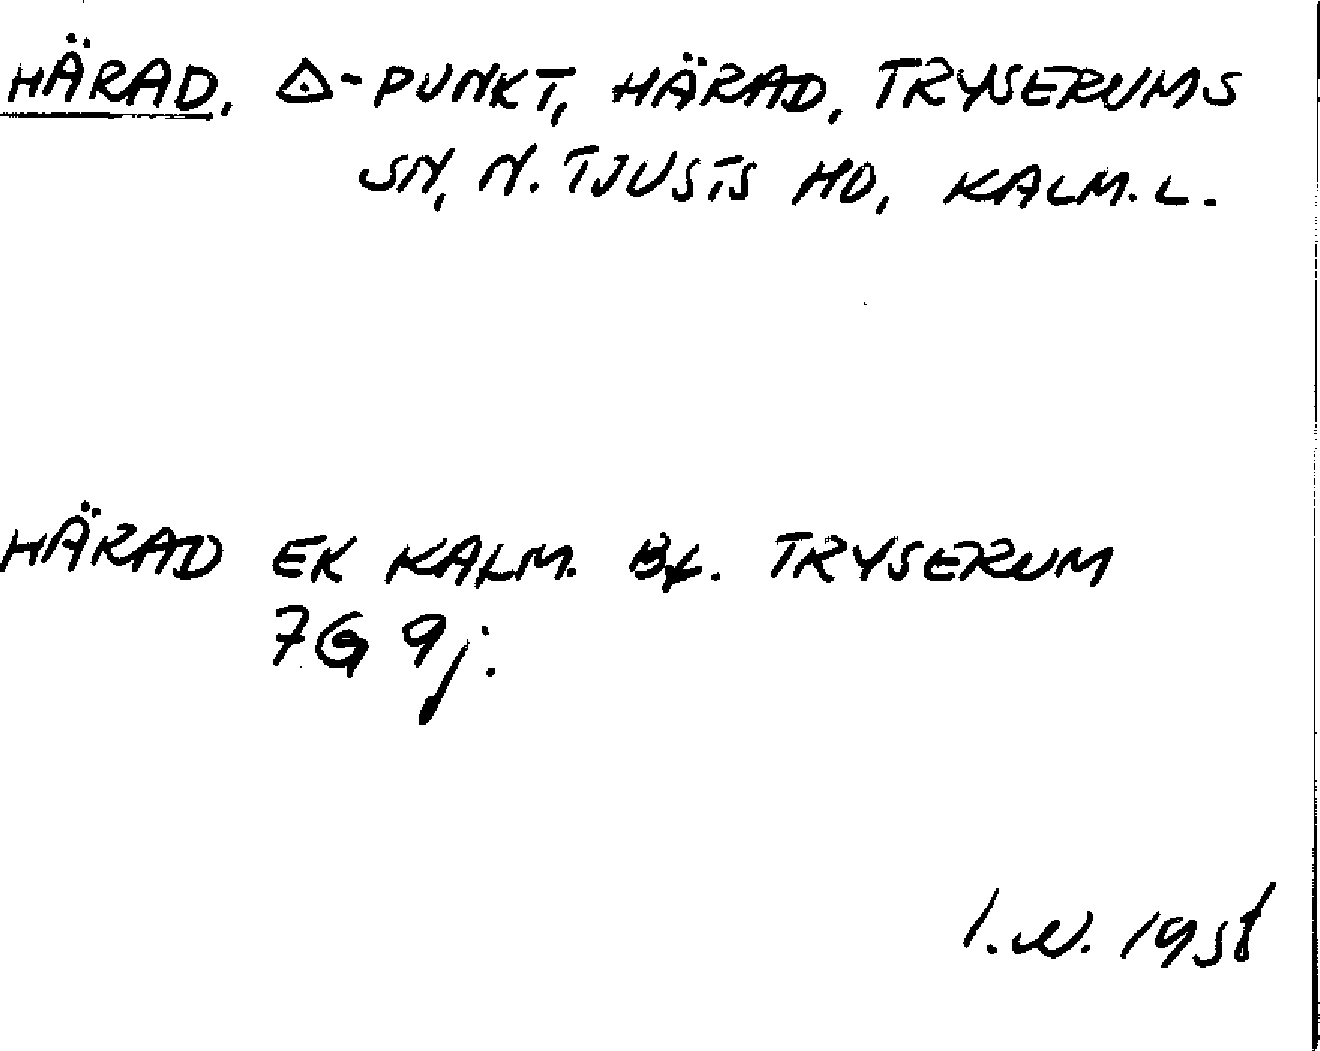 HÄRAD. △-PUNKT, HÄRAD, TRYSERUMS
SN, N. TJUSTS HD, KALM. L.
HÄRAD EK KALM. Bl. TRYSERUM
7G 9j.
I.N. 1958